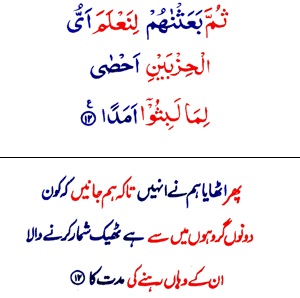 ثُمَّ بَعَثْنٰهُمْ لِنَعْلَمَ اَىُّ
الْحِزْبَيْنِ اَحْصٰى
لِمَا لَبِثُوْۤا اَمَدًا ﴿۱۲﴾ ع
پھر اٹھایا ہم نے انہیں تاکہ ہم جانیں کہ کون
دونوں گروہوں میں سے ہے ٹھیک شمار کرنے والا
ان کے وہاں رہنے کی مدت کا ﴿۱۲﴾